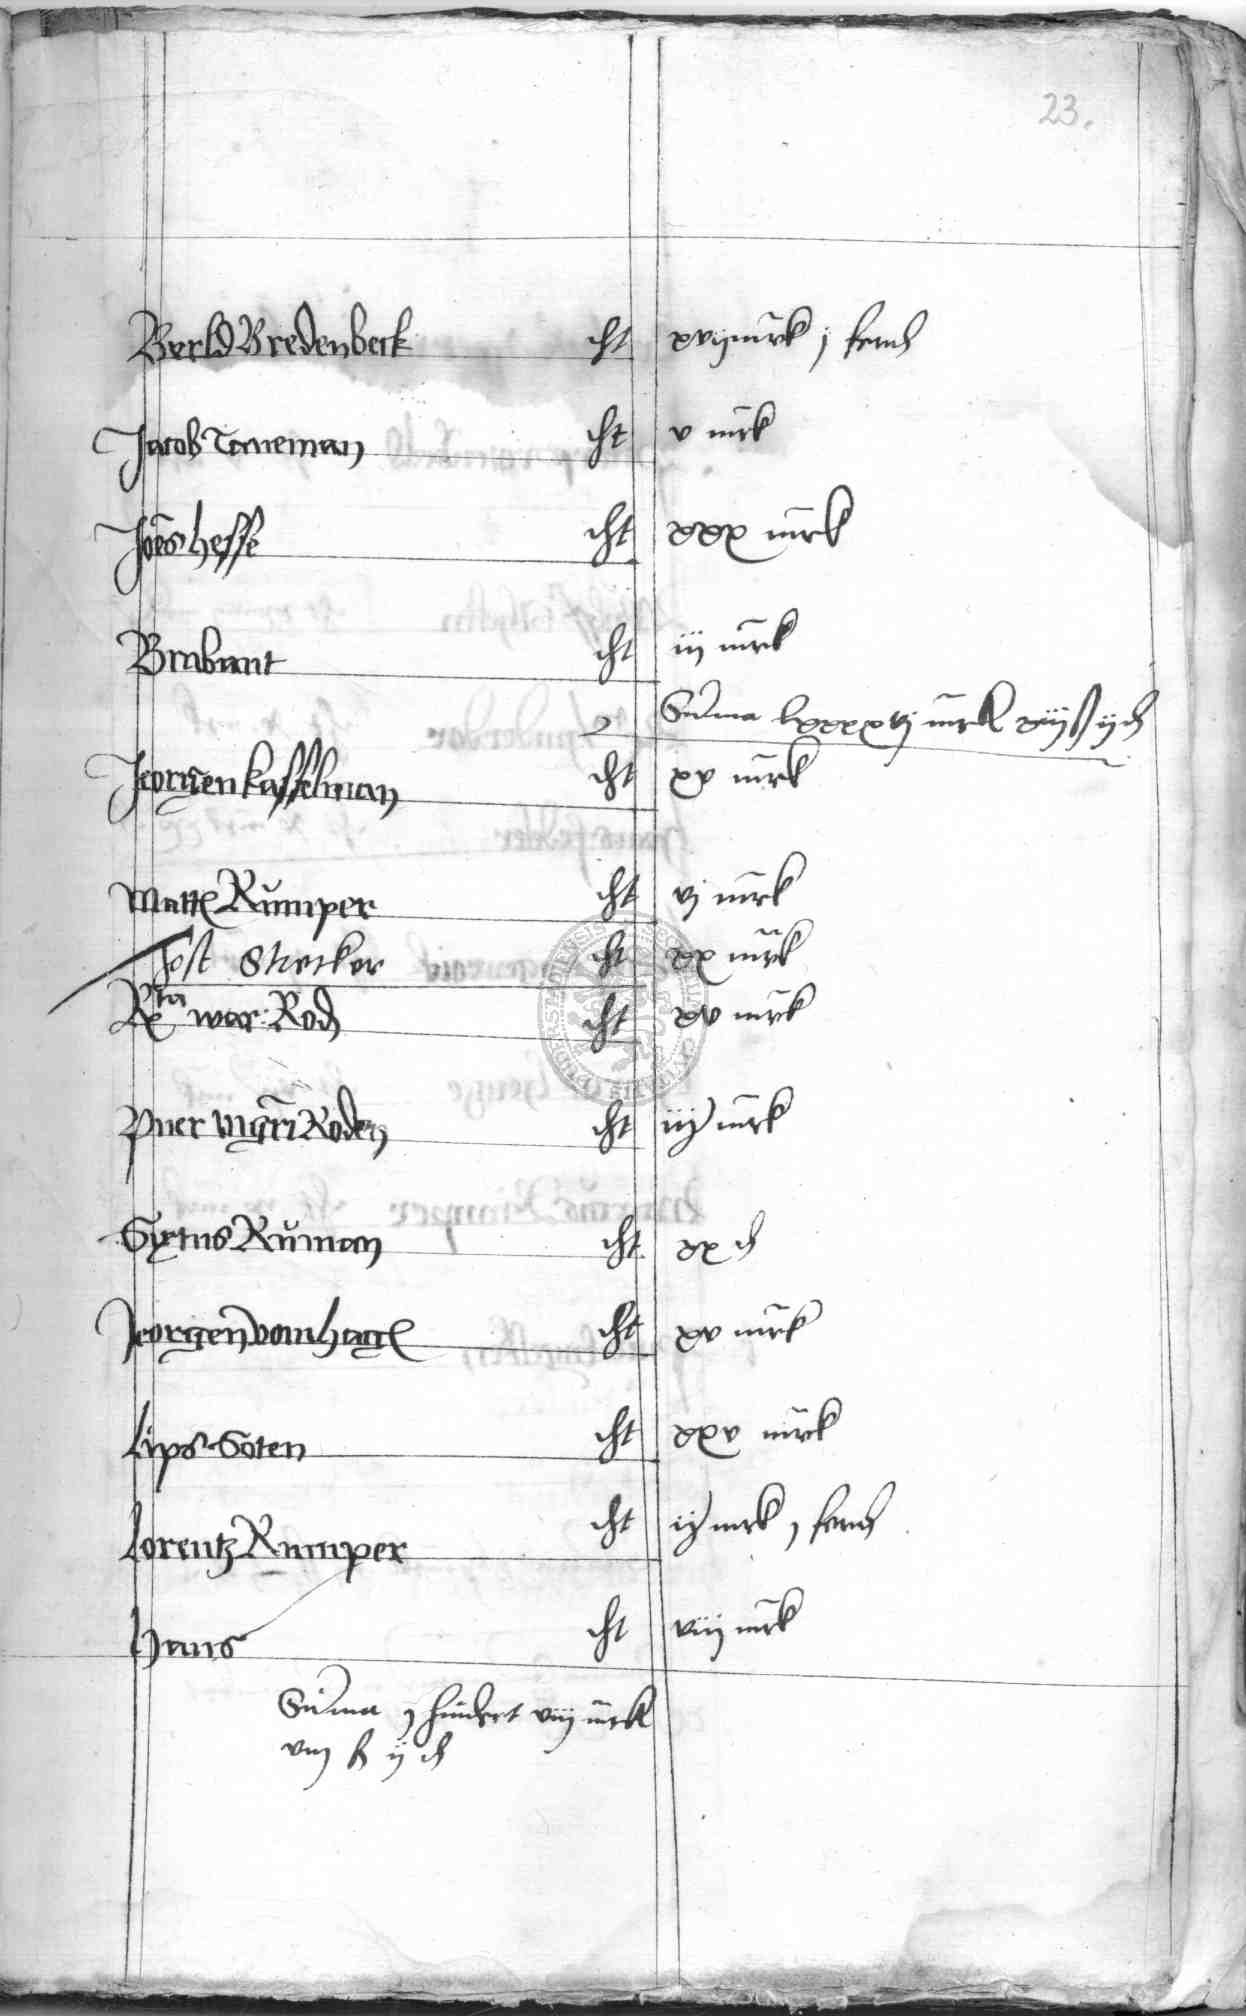 23.
Bertld Bredenbeck dt xvij mrk j ferd
Jacob Toneman dt v mrk
Joes hesse dt xxx mrk
Brabant dt iij mrk
Suma lxxxxvj mrk xiij ß ij d
Jeorgen kasselman dt xv mrk
Matt Rumper dt vj mrk
Jost Strecker dt xx mrk
Rta war: Rod dt xv mrk
Puer mgri Roden dt iij mrk
Sixtus Ruman dt xx d
Jeorgen vom hag dt xv mrk
Lips Soten dt xxv mrk
Lorentz Rumper dt ij mrk j ferd
Hans dt viij mrk
Suma j hundert viij mrk
viij ß ij d